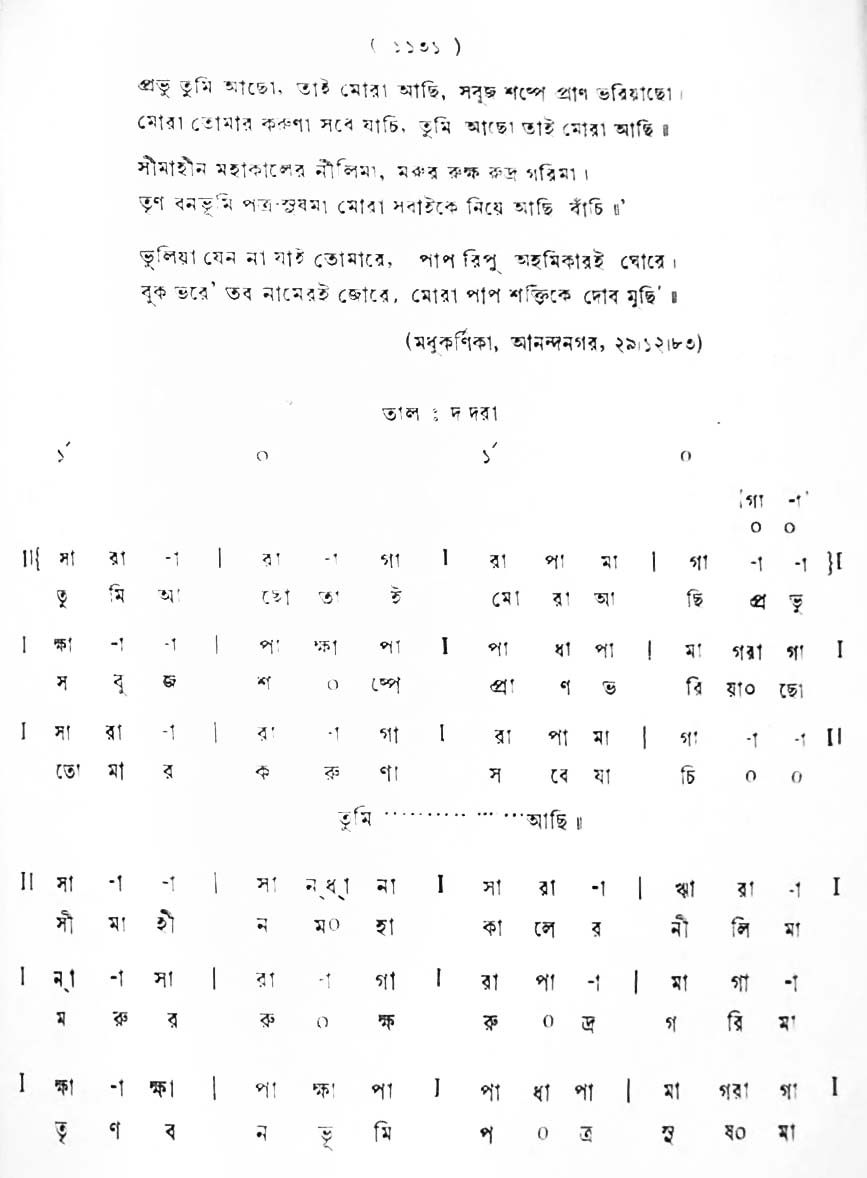 ( ১১৩১ )
প্রভু তুমি আছো, তাই মোরা আছি, সবুজ শষ্পে প্রাণ ভরিয়াছো।
মোরা তোমার করুণা সবে যাচি, তুমি আছো তাই মোরা আছি॥
সীমাহীন মহাকালের নীলিমা, মরুর রুক্ষ রুদ্র গরিমা।
তৃণ বনভূমি পত্র-সুষমা মোরা সবাইকে নিয়ে আছি বাঁচি॥'
ভুলিয়া যেন না যাই তোমারে, পাপ রিপু অহমিকারই ঘোরে।
বুক ভরে' তব নামেরই জোরে, মোরা পাপ শক্তিকে দোব মুছি'॥
(মধুকর্ণিকা, আনন্দনগর, ২৯।১২।৮৩)
তাল : দ দরা
১´ ০ ১´ ০
(গা -া'
০ ০
II{ সা রা -া | রা -া গা I রা পা মা | গা -া -া }I
তু মি আ ছো তা ই মো রা আ ছি প্র ভু
I ক্ষা -া -া | পা ক্ষা পা I পা ধা পা | মা গরা গা I
স বু জ শ ০ ষ্পে প্রা ণ ভ রি য়া০ ছো
I সা রা -া | রা -া গা I রা পা মা | গা -া -া II
তো মা র ক রু ণা স বে যা চি ০ ০
তুমি ·················আছি॥
II সা -া -া | সা ন্‌ধ্‌া না I সা রা -া | ঋা রা -া I
সী মা হী ন ম০ হা কা লে র নী লি মা
I ন্‌া -া সা | রা -া গা I রা পা -া | মা গা -া
ম রু র রু ০ ক্ষ রু ০ দ্র গ রি মা
I ক্ষা -া ক্ষা | পা ক্ষা পা I পা ধা পা | মা গরা গা I
তৃ ণ ব ন ভূ মি প ০ ত্র সু ষ০ মা